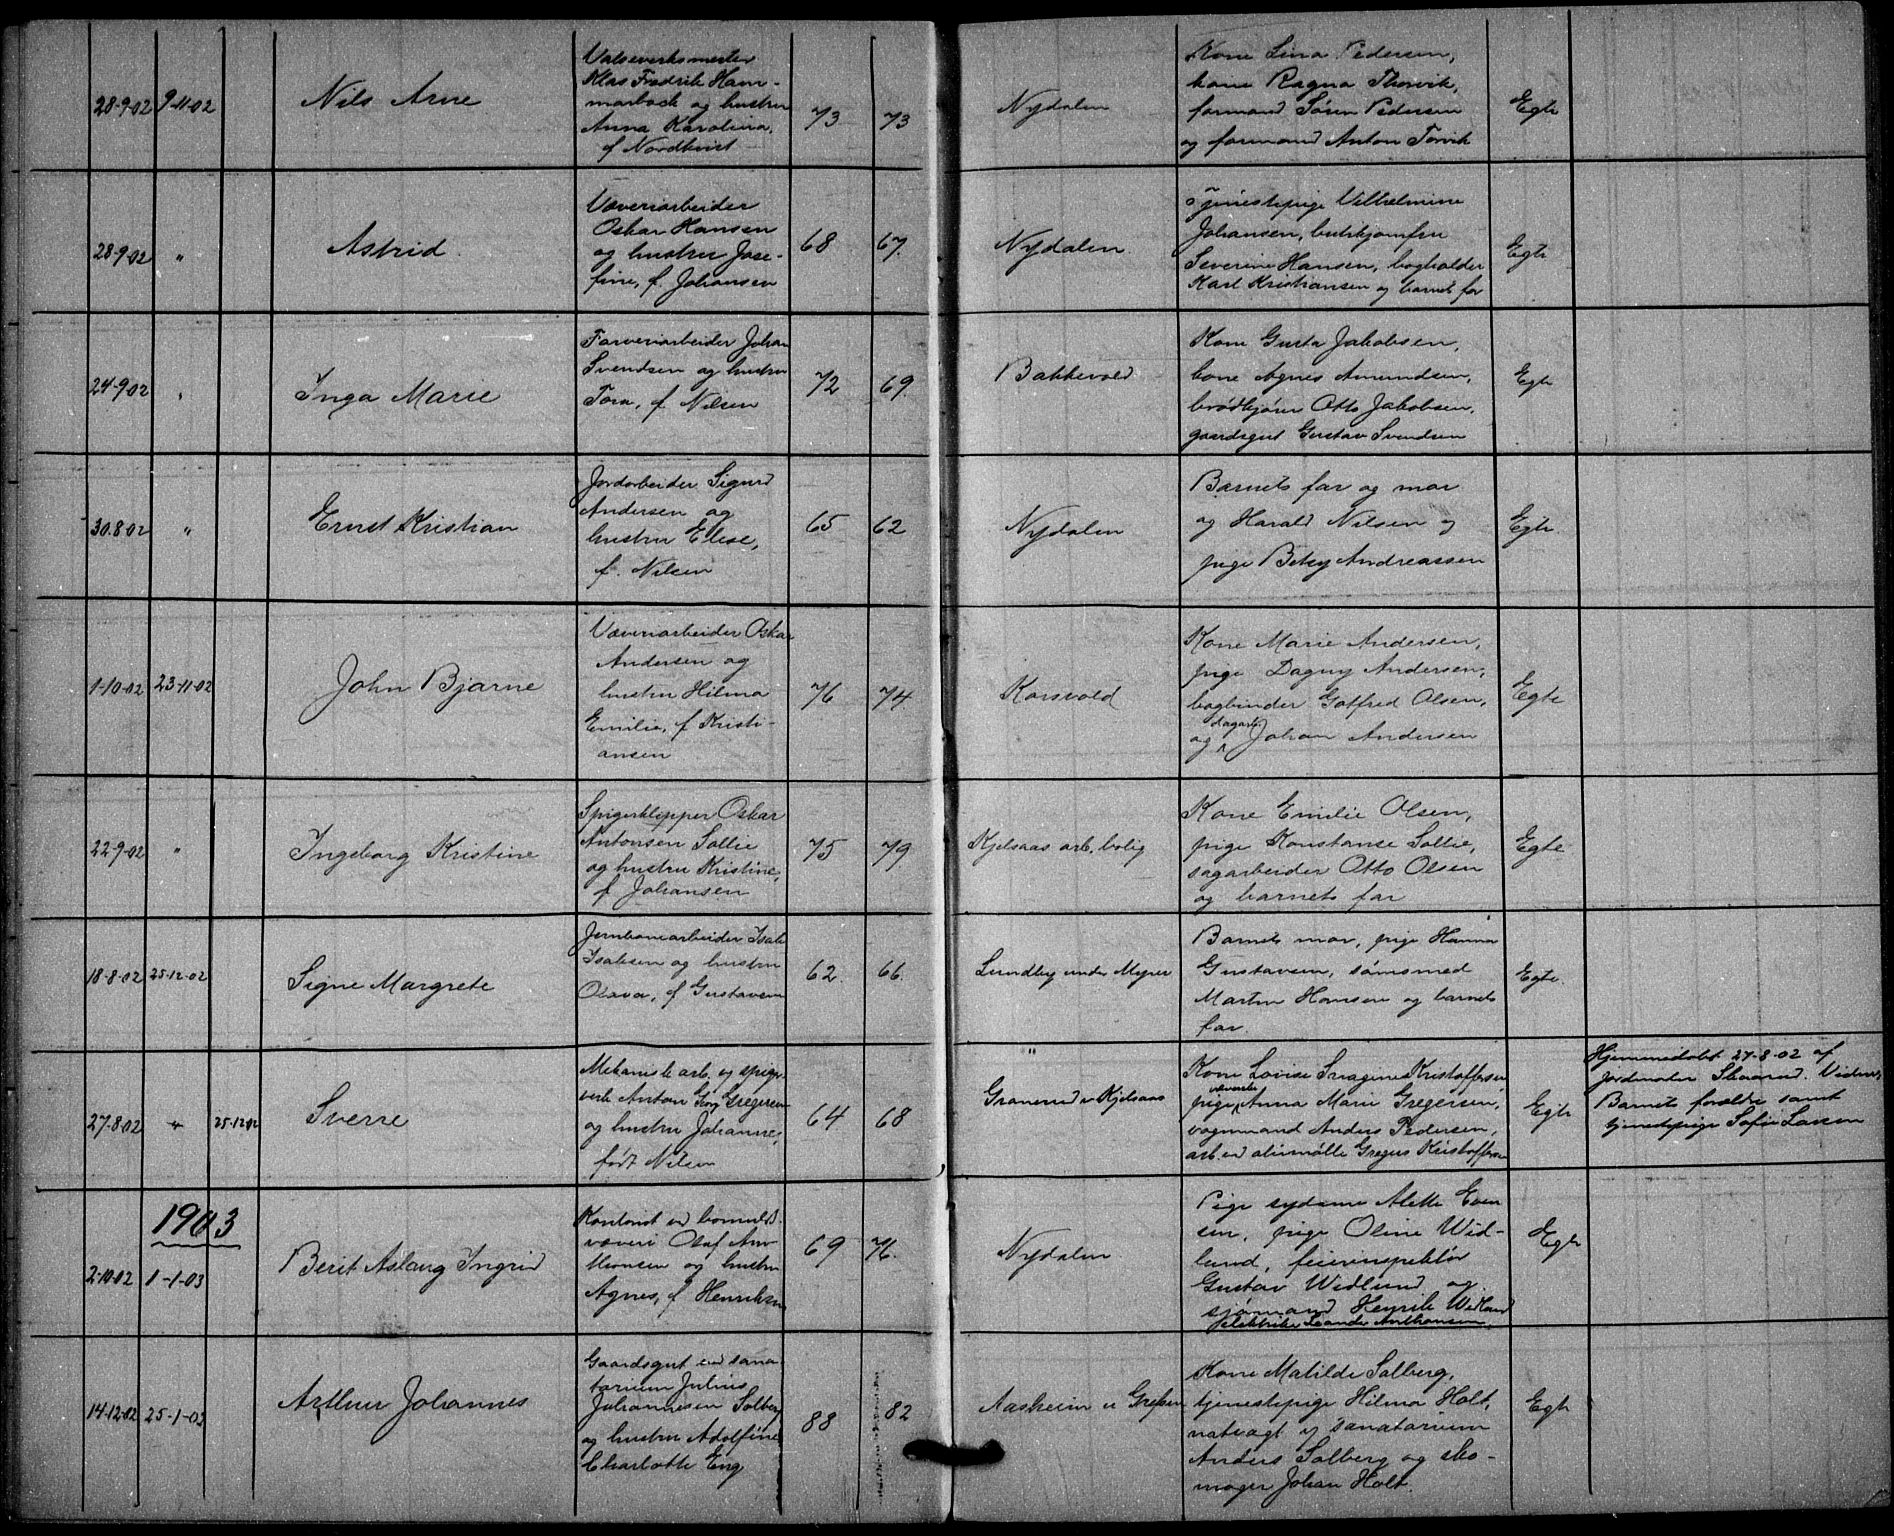 28-9-02 9-11-02 Nils Arne
Valseverksmester
Klas Fredrik Ham-
marbäck og hustru
Anna Karolina,
f Nordkvist
73 73 Nydalen
Kone Lina Pedersen,
kone Ragna Thorvik,
formand Søren Pedersen
og formand Anton Torvik
Egte
28-9-02 " Astrid
Væveriarbeider
Oskar Hansen
og hustru Jose-
fine, f. Johansen
68 67. Nydalen.
Tjenestepige Vilhelmine
Johansen, butikjomfru
Severine Hansen, bogholder
Karl Kristiansen og barnets far
Egte
24-9-02 " Inga Marie
Farveriarbeider Johan
Svendsen og hustru
Tora, f Nilsen
72 69. Bakkevold
Kone Gusta Jakobsen,
kone Agnes Amundsen,
brødkjører Otto Jakobsen,
gaardsgut Gustav Svendsen
Egte
30.8-02 " Ernst Kristian
Jordarbeider Sigurd
Andersen og
hustru Elise,
f. Nilsen
65 62 Nydalen
Barnets far og mor
og Harald Nilsen og
pige Betsy Andreassen
Egte.
1-10-02 23-11-02 John Bjarne
Væveriarbeider Oskar
Andersen og
hustru Hilma
Emilie, f Kristi-
ansen
76 74. Korsvold
Kone Marie Andersen,
pige Dagny Andersen,
bogbinder Gotfred Olsen,
og dagarb. Johan Andersen
Egte
22-9-02 " Ingeborg Kristine
Spigerklipper Oskar
Antonsen Sollie
og hustru Kristine,
f Johansen
75 79 Kjelsaas arb. bolig
Kone Emilie Olsen,
pige Konstanse Sollie,
sagarbeider Otto Olsen
og barnets far
Egte
18-8-02 25-12-02 Signe Margrete
Jernbanearbeider Isak
Isaksen og hustru
Olava, f Gustavsen
62. 66. Lundby under Myrer
Barnets mor, pige Hanna
Gustavsen, sømsmed
Martin Hansen og barnets
far.
Egte.
27-8-02 " 25-12-02 Sverre
Mekanisk arb. v spiger-
verk Anton Georg Gregersen
og hustru Johanne,
født Nilsen
64 68
"
Granerud v Kjelsaas
Kone Lovise Kristoffersen
pige væverske Anna Marie Gregersen,
vognmand Anders Pedersen,
arb. ved oliemølle Gregers Kristoffersen
Egte
Hjemmedøbt 27-8-02 af
jordmoder Skaarud. Vidner
Barnets forældre samt
tjenestepige Sofie Larsen
1903
2-10-02 1-1-03 Berit Aslaug Ingrid
Kontorist ved bomulds-
væveri Olaf An-
thonsen og hustru
Agnes, f Henriksen
69 71. Nydalen
Pige sydame Alette Even-
sen, pige Oline Wid-
lund, feierinspektør
Gustav Widlund og
sjømand Henrik Widlund
Leander Anthonsen
Egte
14-12-02 25-1-03 Arthur Johannes
Gaardsgut ved sana-
torium Julius
Johannesen Solberg
og hustru Adolfine
Charlotte Eng
88 82 Aasheim u Grefsen
Kone Matilde Solberg,
tjenestepige Hilma Holt,
natvagt v sanatorium
Anders Solberg og sko-
mager Johan Holt.
Egte